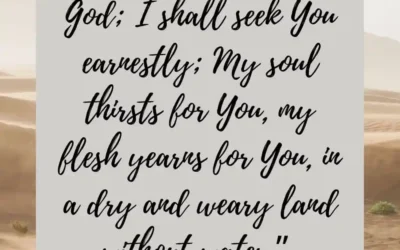 God; I shall seek You
earnestly; My soul
thirsts for You, my
flesh yearns for You, in
a dry and weary land
without water."